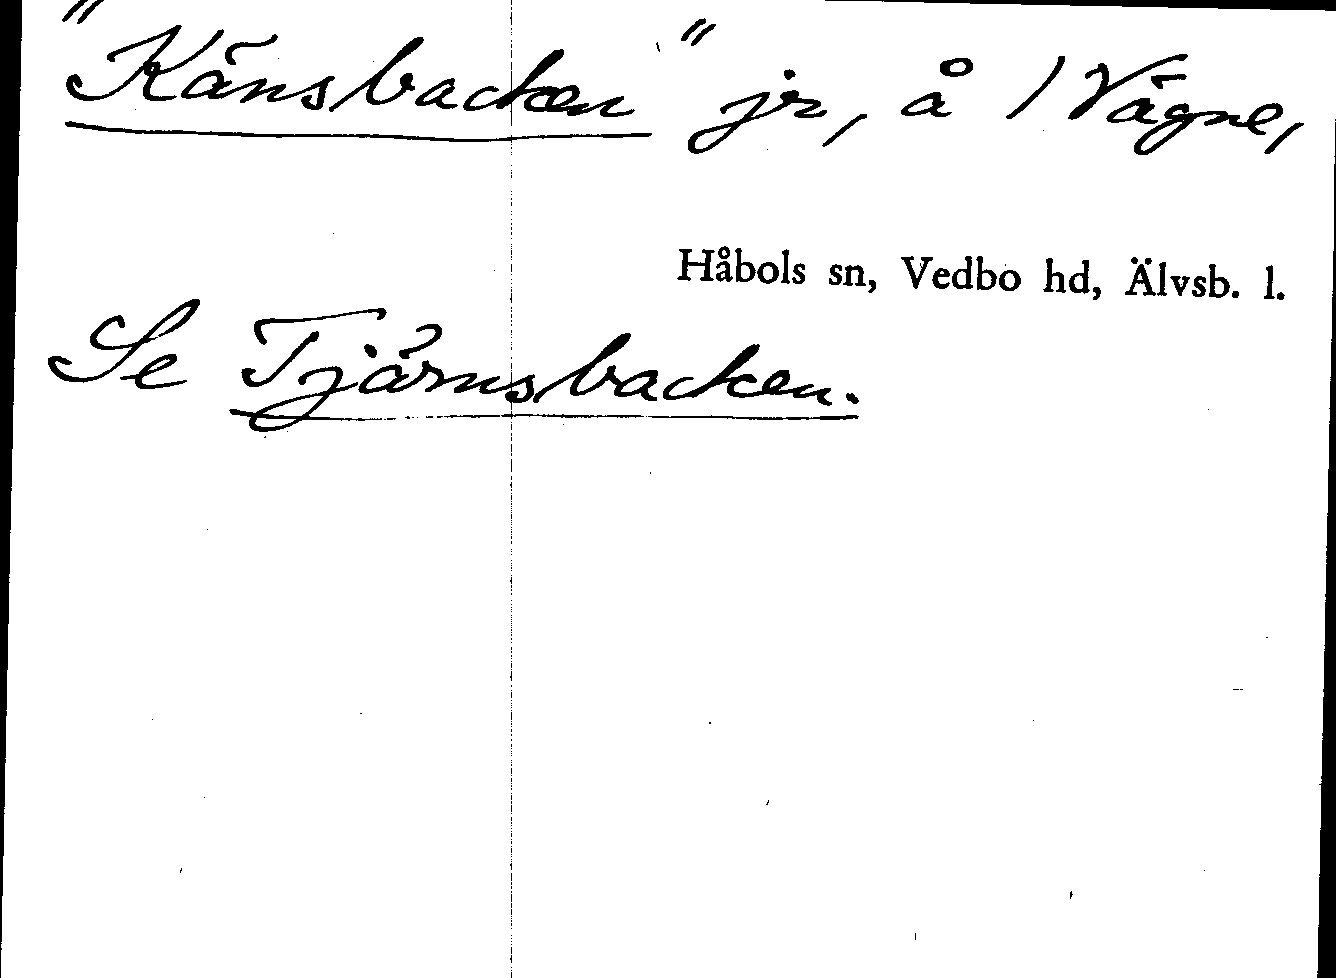 "Känsbacken" jr, å 1 Vägne,
Håbols sn, Vedbo hd, Älvsb. l.
Se Tjärnsbacken.